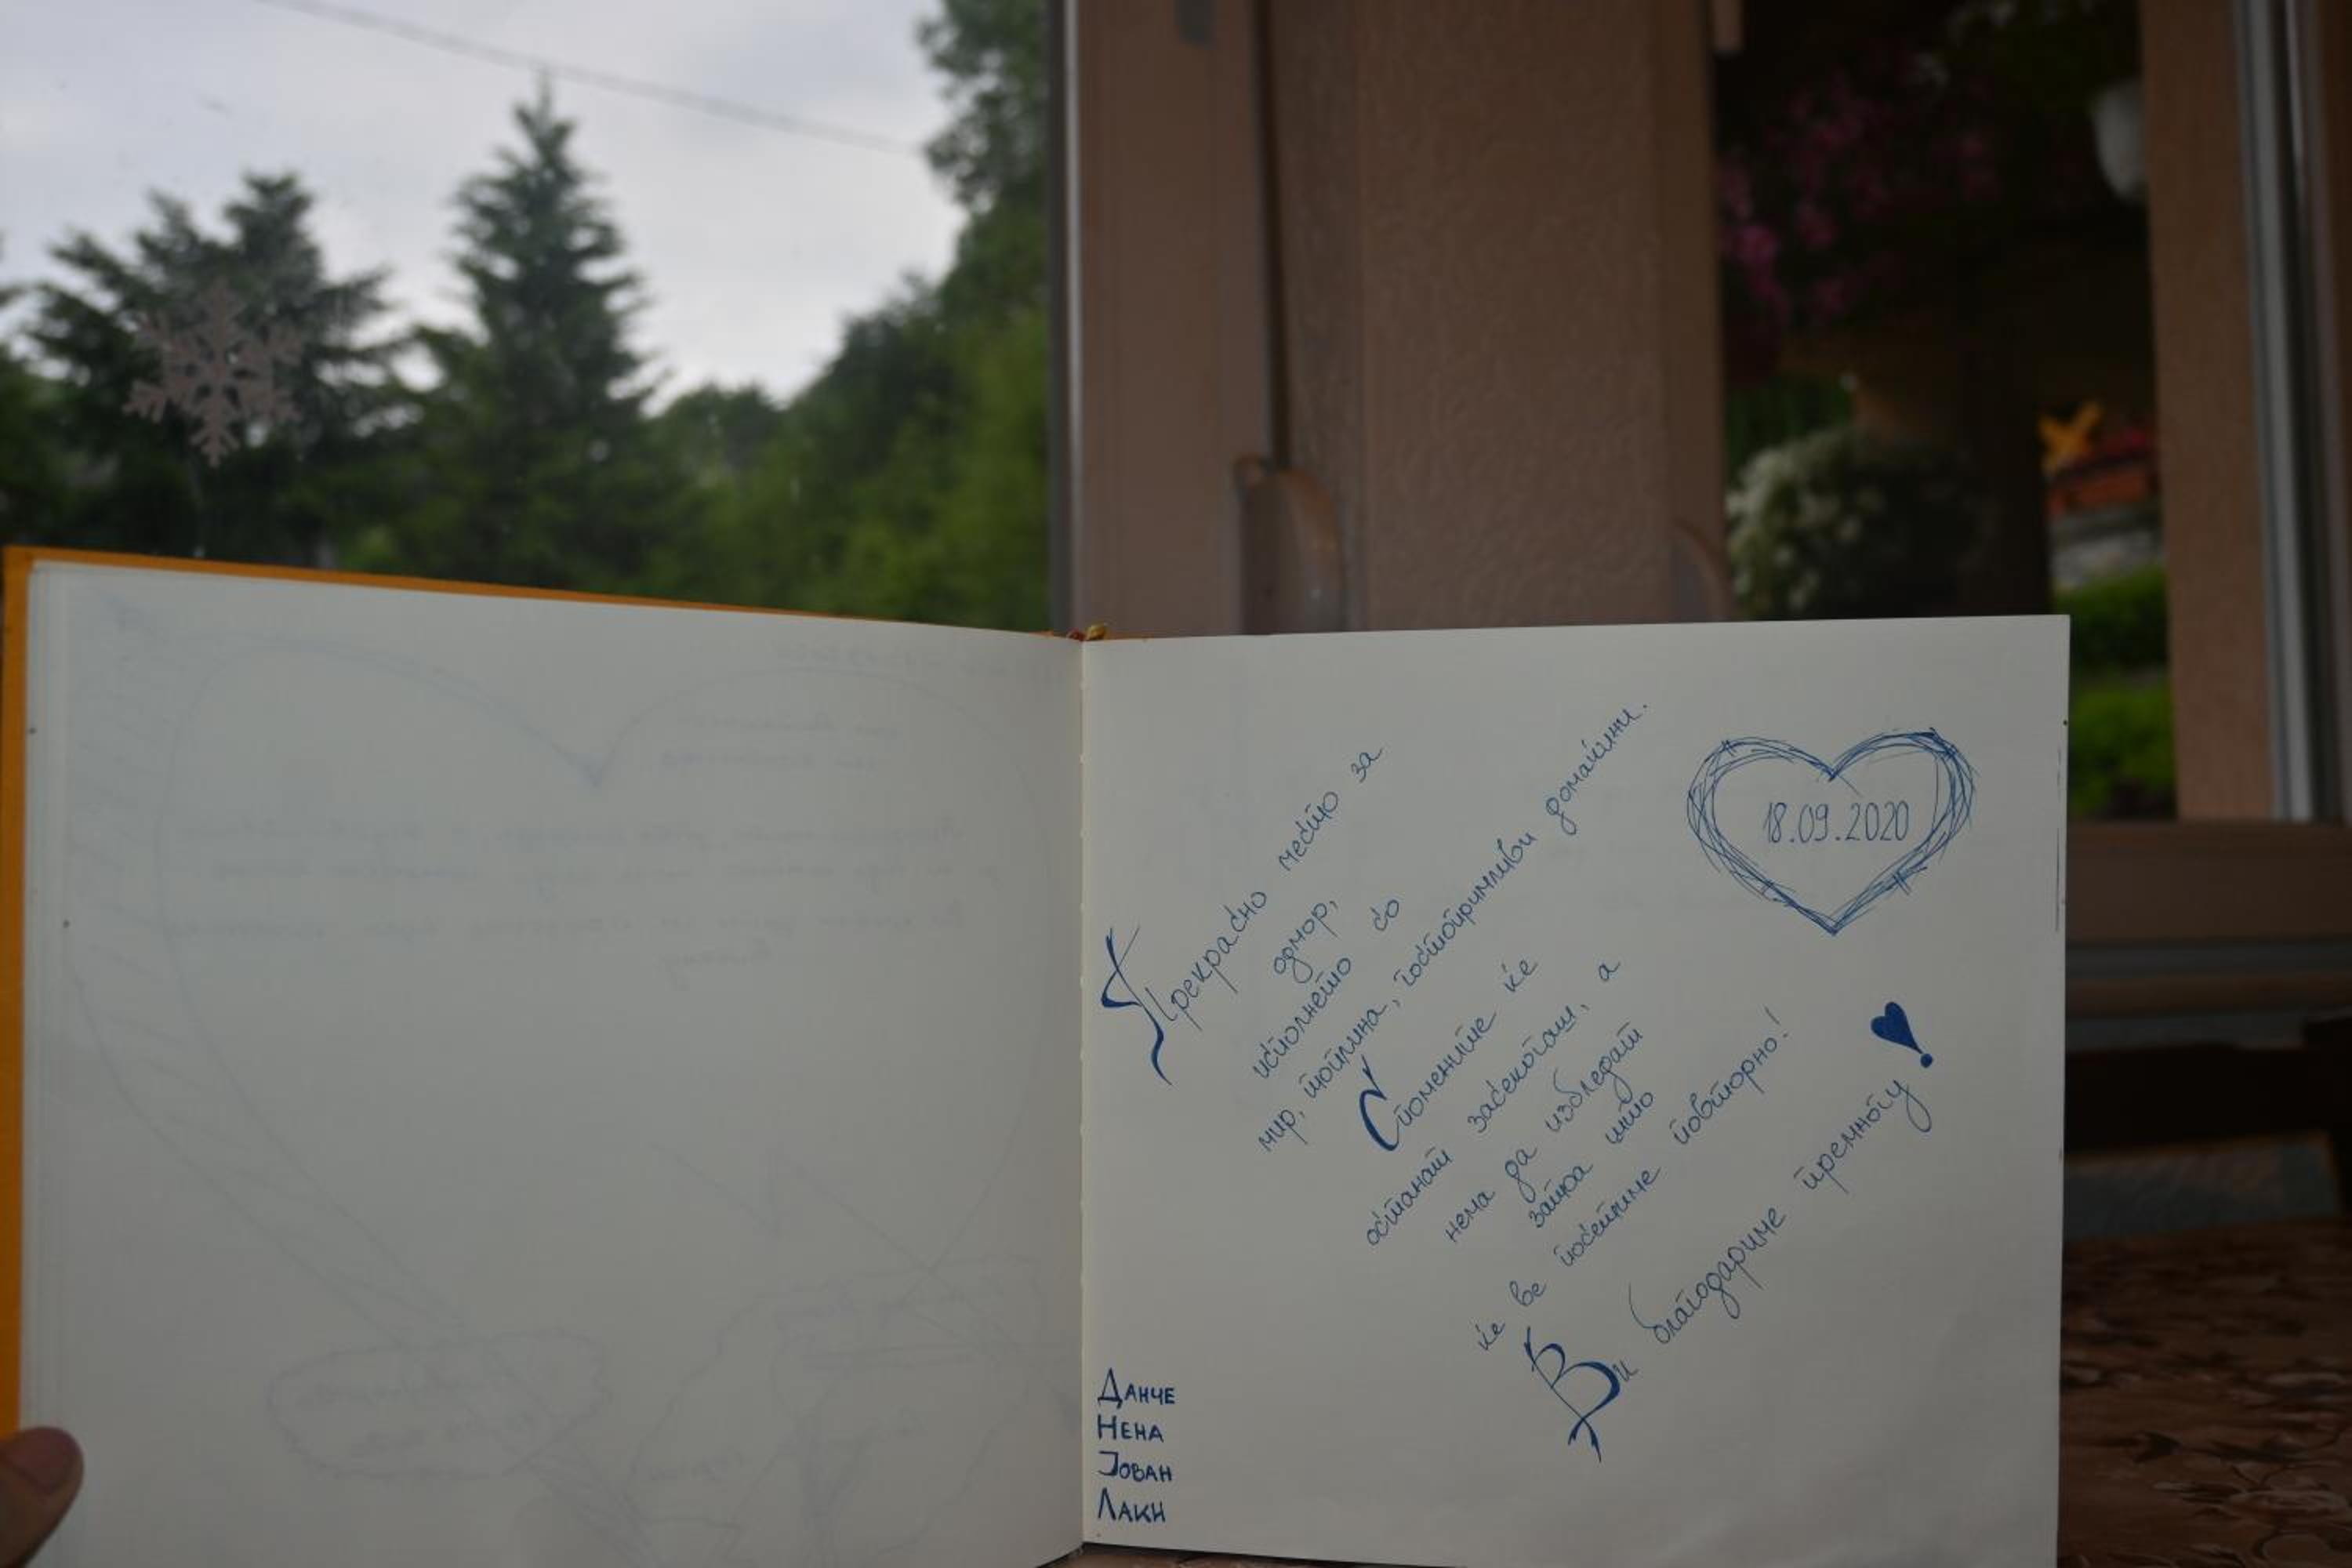 Прекрасно место за
одмор,
исполнето со
мир, топлина, гостопримливи домаќини.
Спомените ќе
останат засекогаш, а
нема да избледат
затоа што
ќе ве посетиме повторно!
Ви благодариме премногу
18.09.2020
Данче
Нена
Јован
Лаки